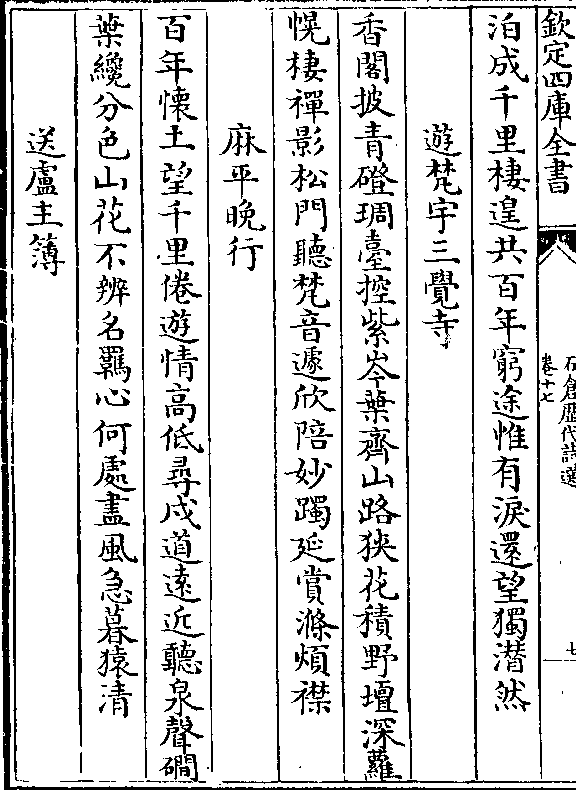 欽定四庫全書
石倉歷代詩選
卷十七
七
泊成千里棲遑共百年窮途惟有淚還望獨潸然
遊梵宇三覺寺
香閣披青磴琱臺控紫岑葉齊山路狹花積野壇深蘿
幌棲禪影松門聽梵音遽欣陪妙躅延賞滌煩襟
麻平晚行
百年懷土望千里倦遊情高低尋戍道遠近聽泉聲磵
葉纔分色山花不辨名羈心何處盡風急暮猿清
送盧主簿